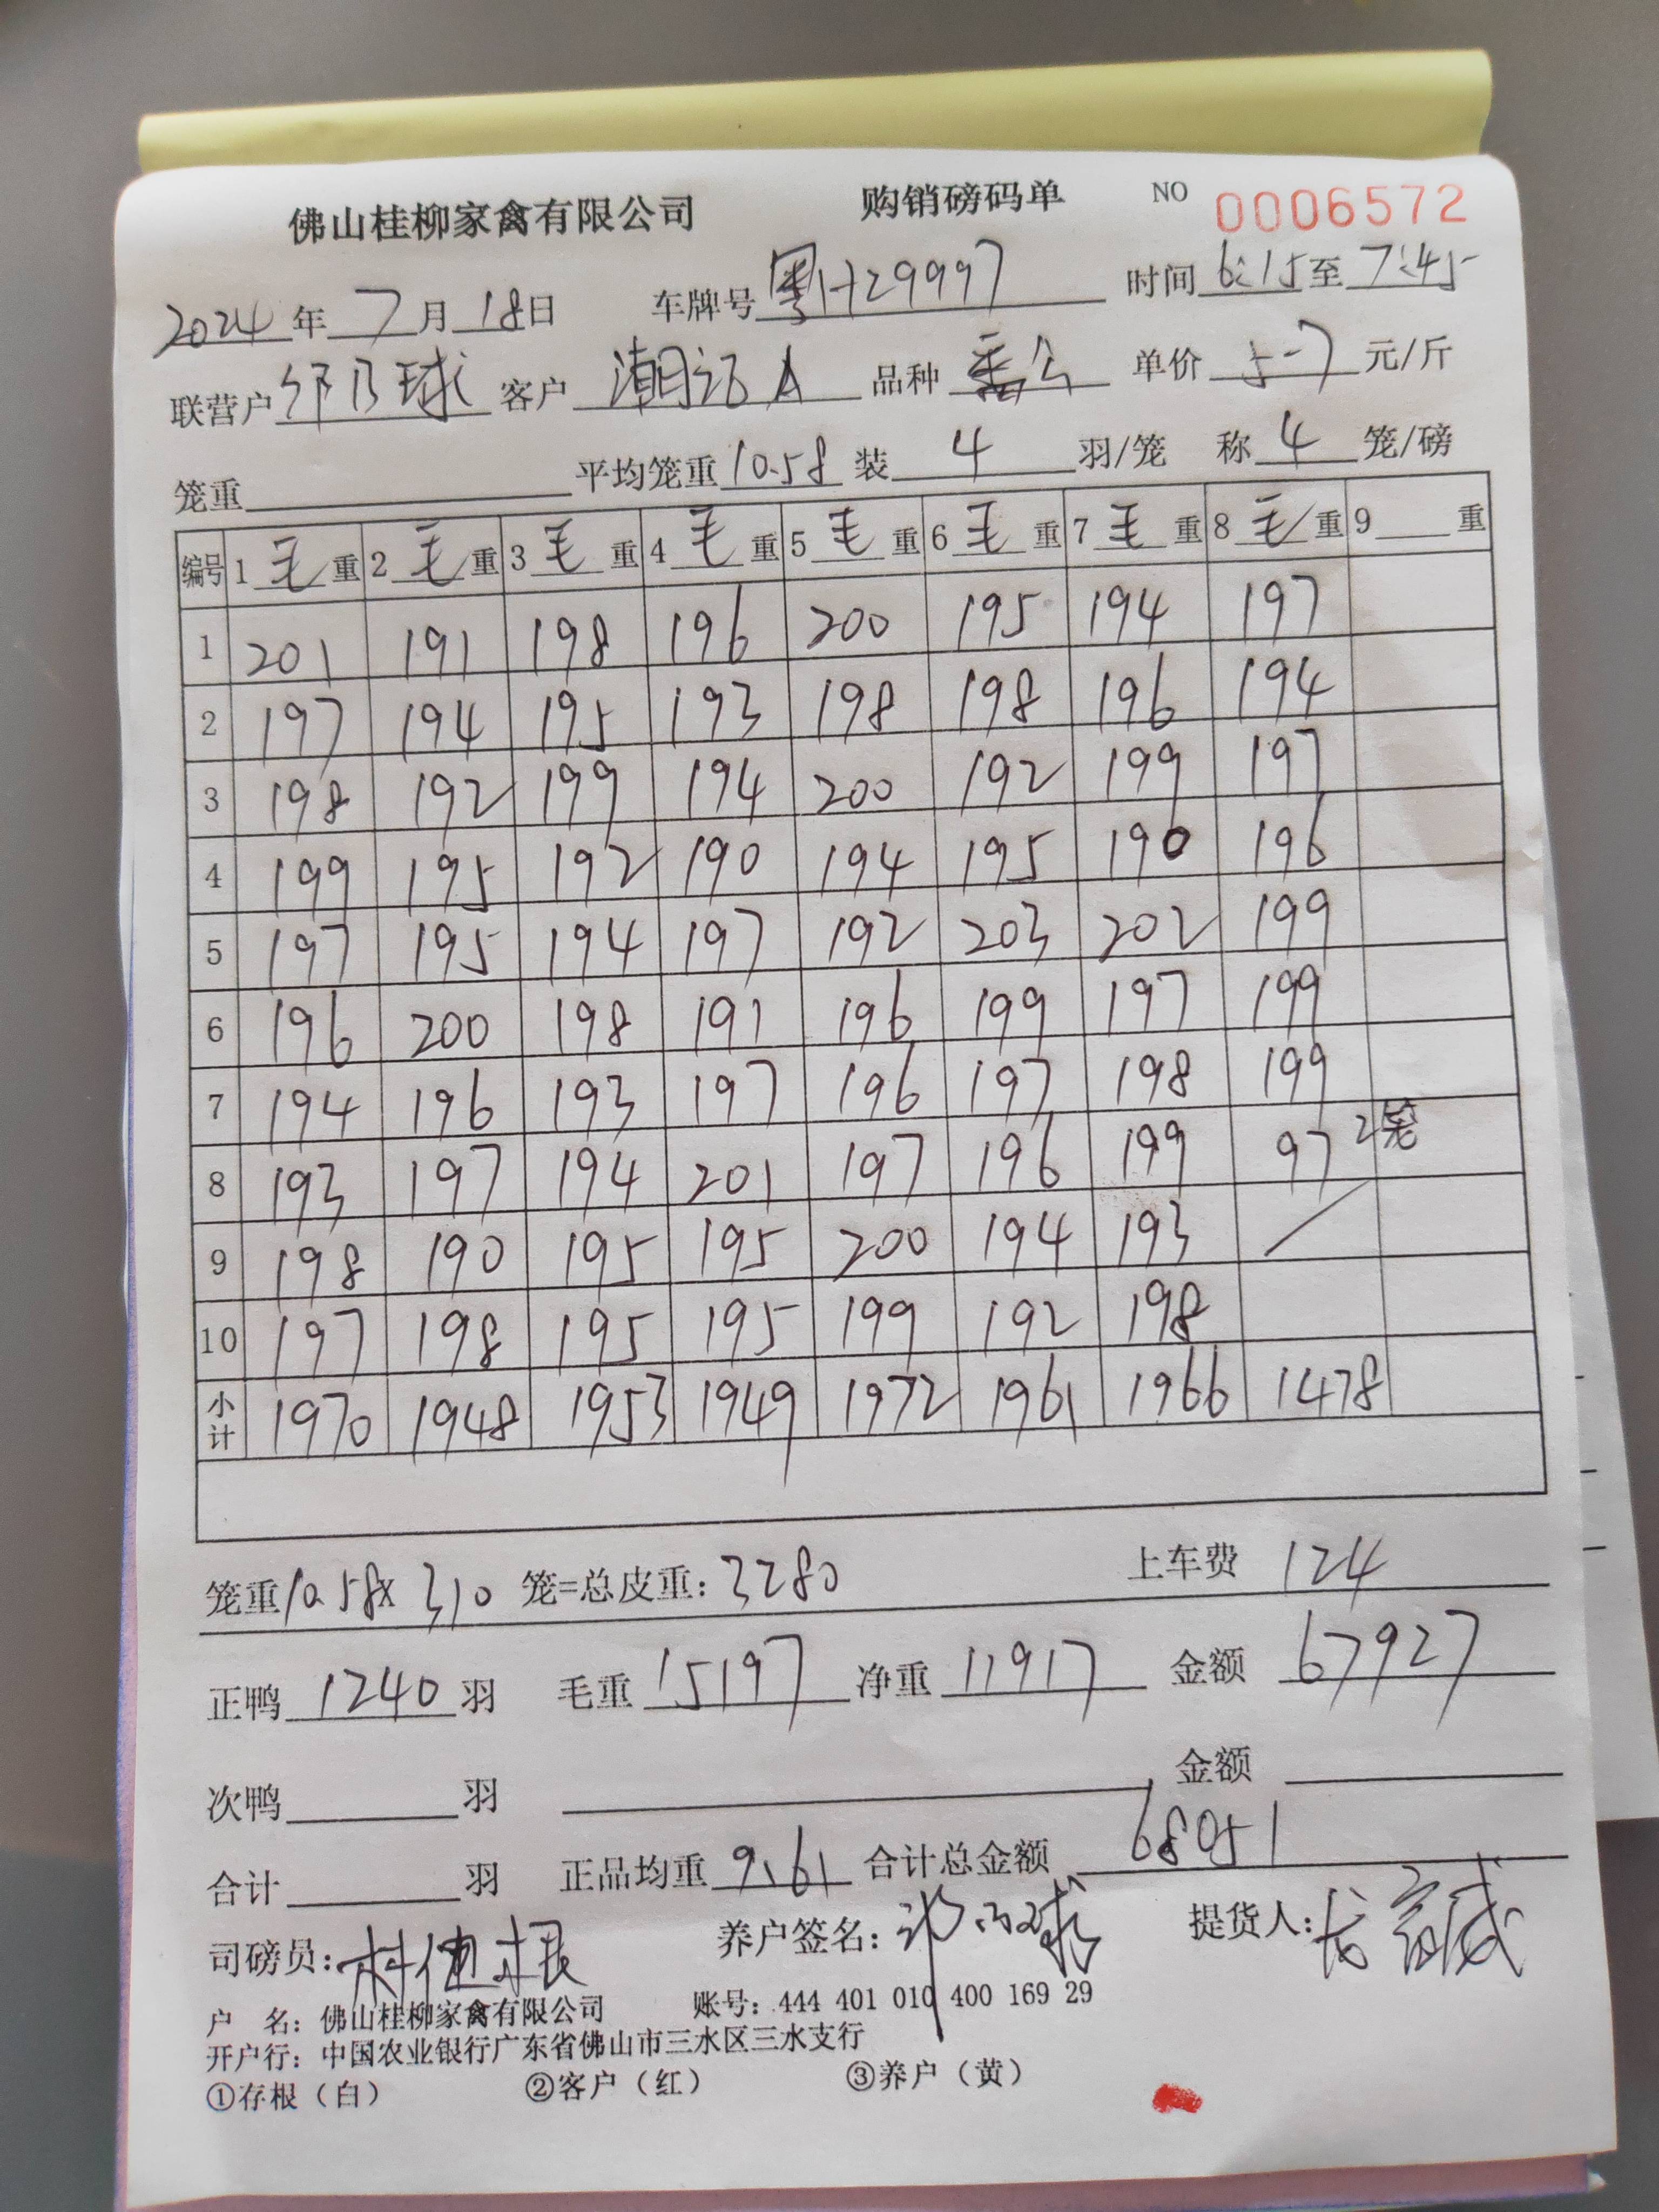 佛山桂柳家禽有限公司 购销磅码单 NO 0006572
2024年7月18日 车牌号粤H29997 时间6:15至7:45
联营户 球 客户潮记A 品种 公 单价5-7元/斤
笼重 平均笼重10.58装4羽/笼 称4笼/磅
编号 1毛重 2毛重 3毛重 4毛重 5毛重 6毛重 7毛重 8毛重 9重
1 201 191 198 196 200 195 194 197
2 197 194 195 193 198 198 196 194
3 198 192 199 194 200 192 199 197
4 199 195 192 190 194 195 190 196
5 197 195 194 197 192 203 202 199
6 196 200 198 191 196 199 197 199
7 194 196 193 197 196 197 198 199
8 193 197 194 201 197 196 199 97 2笼
9 198 190 195 195 200 194 193 /
10 197 198 195 195 199 192 198
小计 1970 1948 1953 1949 1972 1961 1966 1478
笼重10.58x310笼=总皮重:3280 上车费124
正鸭1240羽 毛重15197净重11917 金额67927
次鸭羽 金额
合计羽 正品均重9.61合计总金额68051
司磅员: 养户签名: 提货人:
户 名:佛山桂柳家禽有限公司 账号:444 401 010 400 169 29
开户行:中国农业银行广东省佛山市三水区三水支行
①存根(白) ②客户(红) ③养户(黄)